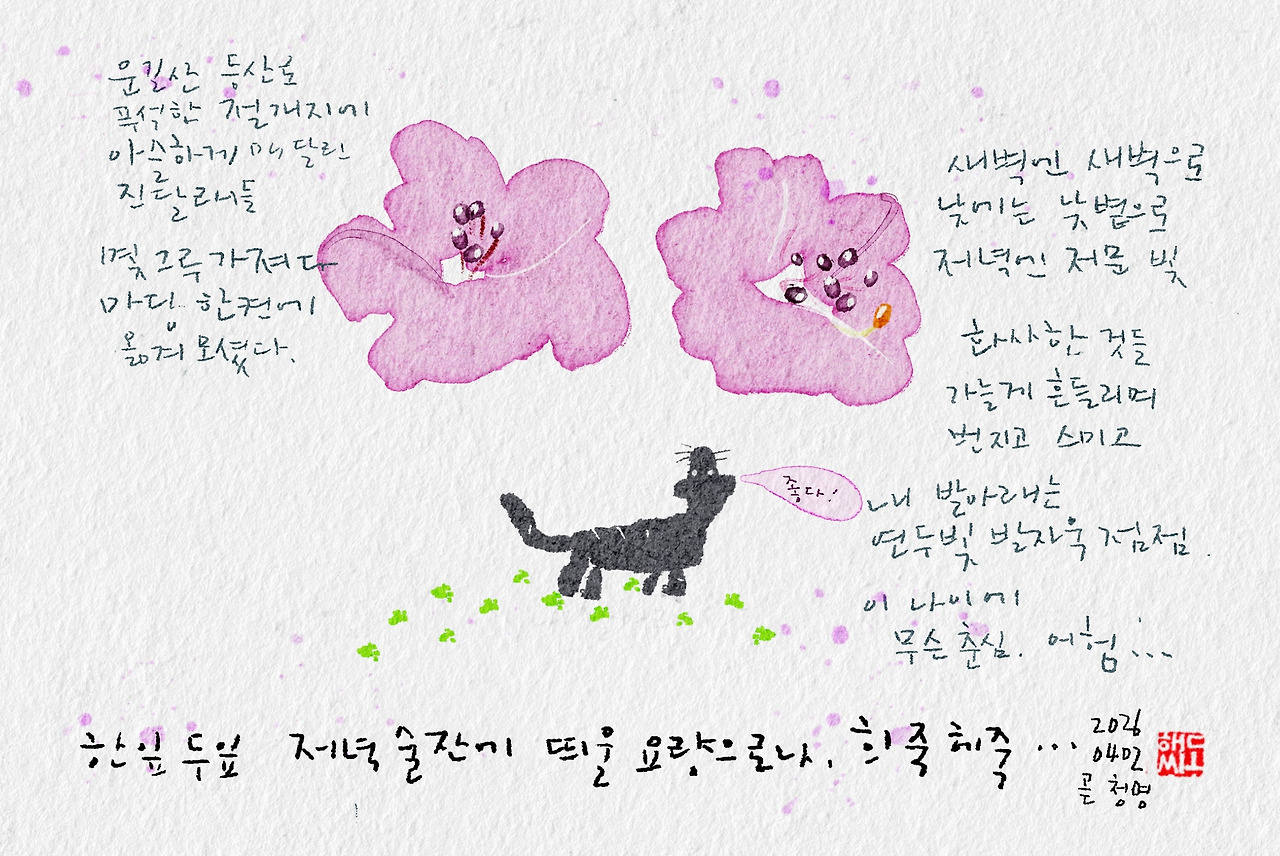 운길산 등산로
푸석한 절개지에
아스하게 매달린
진달래들
몇 그루 가져다
마당 한켠에
옮겨 모셨다.
새벽엔 새벽으로
낮에는 낮볕으로
저녁엔 저문 빛
화사한 것들
가늘게 흔들리며
번지고 스미고
좋다!
내 발아래는
연두빛 발자욱 점점.
이 나이에
무슨 춘심. 어험...
한잎 두잎 저녁 술잔에 띄울 요량으로나, 히죽헤죽...
2026
0402
곧 청명